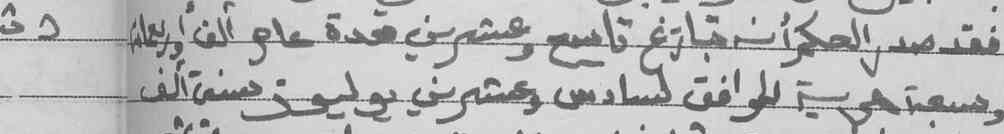 فقد صدر الحكم أنه بتاريخ تاسع وعشرين قعدة عام ألف وأربعمائة
وسبعة هجرية الموافق لسادس وعشرين يوليوز سنة ألف